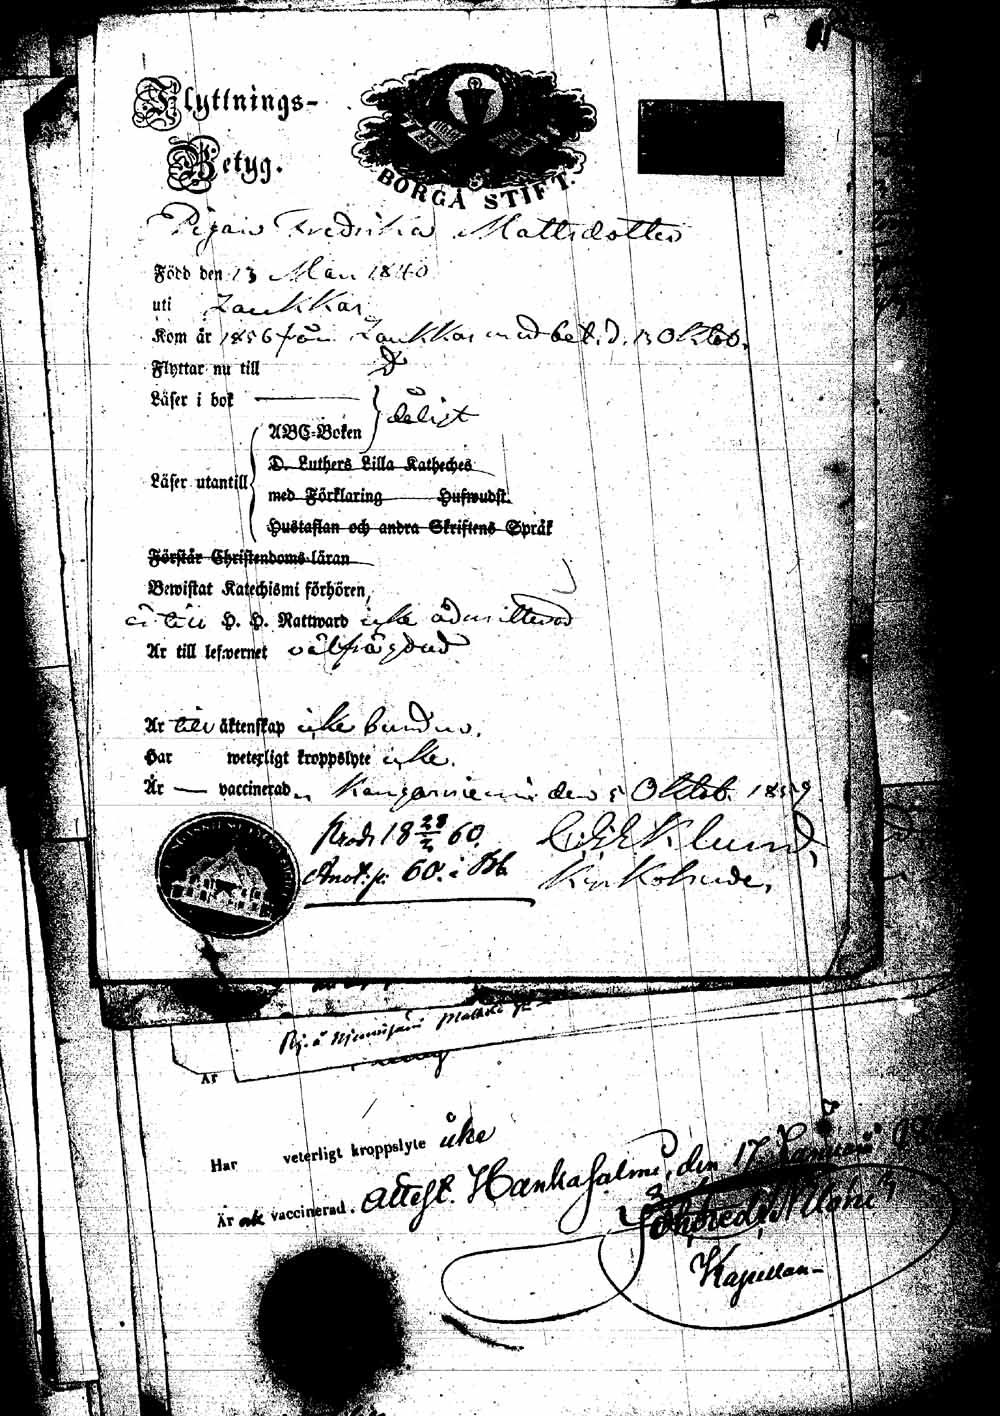 Flyttnings-
Betyg.
BORGÅ STIFT.
Pigan Fredrika Mattsdotter
Född den 13 Maii 1840
uti Laukkas
Kom år 1856 från Laukkas med bet. d. 13 Oktob.
Flyttar nu till D
Läser i bok
ABC-Boken } dåligt
Läser utantill
D. Luthers Lilla Katheches
med Förklaring Hufwudst.
Hustaflan och andra Skriftens Språk
Förstår Christendoms läran
Bewistat Katechismi förhören,
är till H. H. Nattward icke admitterad
Är till lefwernet välfrägdad
Är till äktenskap icke bunden.
Har weterligt kroppslyte icke.
Är — vaccinerad. Kangasniemi den 5 Oktob. 1859
Prod. 18 28/2 60. C. G. Eklund,
Anot. p. 60. i Bb. Kyrkoherde.
Har veterligt kroppslyte icke
Är ok vaccinerad. attest. Hankasalmi, den 17 Januari
Kapellan